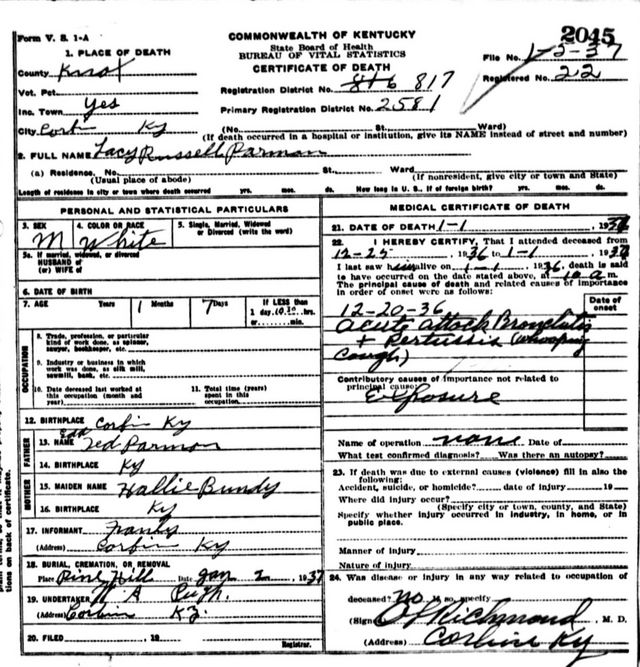 Form V. S. 1-A
COMMONWEALTH OF KENTUCKY
State Board of Health
BUREAU OF VITAL STATISTICS
CERTIFICATE OF DEATH
2045
File No. 1-2-37
Registered No. 22
1. PLACE OF DEATH
County Knox
Vot. Pct.
Inc. Town Yes
City Corbin Ky
Registration District No. 816 817
Primary Registration District No. 2581
(No. St., Ward)
(If death occurred in a hospital or institution, give its NAME instead of street and number)
2. FULL NAME Lacy Russell Parman
(a) Residence. No. St., Ward
(Usual place of abode) (If nonresident, give city or town and State)
Length of residence in city or town where death occurred yrs. mos. ds. How long in U. S. if of foreign birth? yrs. mos. ds.
PERSONAL AND STATISTICAL PARTICULARS
3. SEX M
4. COLOR OR RACE White
5. Single, Married, Widowed or Divorced (write the word)
5a. If married, widowed, or divorced
HUSBAND of
(or) WIFE of
6. DATE OF BIRTH
7. AGE Years 1 Months 7 Days
If LESS than
1 day, 10.30 hrs.
or min.
OCCUPATION
8. Trade, profession, or particular
kind of work done, as spinner,
sawyer, bookkeeper, etc.
9. Industry or business in which
work was done, as silk mill,
sawmill, bank, etc.
10. Date deceased last worked at
this occupation (month and
year)
11. Total time (years)
spent in this
occupation
12. BIRTHPLACE Corbin Ky
FATHER
13. NAME Ted Parman
14. BIRTHPLACE Ky
MOTHER
15. MAIDEN NAME Hallie Bundy
16. BIRTHPLACE Ky
17. INFORMANT
(Address) Corbin Ky
18. BURIAL, CREMATION, OR REMOVAL
Place Pine Hill Date Jan 2, 1937
19. UNDERTAKER
(Address) Corbin Ky.
20. FILED , 19
Registrar.
MEDICAL CERTIFICATE OF DEATH
21. DATE OF DEATH 1-1
22. I HEREBY CERTIFY, That I attended deceased from
12-25, 1936 to 1-1
I last saw him alive on 1-1, 1936, death is said
to have occurred on the date stated above, at 10 a m.
The principal cause of death and related causes of importance
in order of onset were as follows:
Date of
onset
12-20-36
Acute attack Bronchitis
+ Pertussis (whooping
Cough)
Contributory causes of importance not related to
principal cause:
Exposure
Name of operation none Date of
What test confirmed diagnosis? Was there an autopsy?
23. If death was due to external causes (violence) fill in also the
following:
Accident, suicide, or homicide? date of injury 19
Where did injury occur?
(Specify city or town, county, and State)
Specify whether injury occurred in industry, in home, or in
public place.
Manner of injury
Nature of injury
24. Was disease or injury in any way related to occupation of
deceased? No If so, specify
(Sign) Richmond, M. D.
(Address) Corbin Ky
tions on back of certificate.